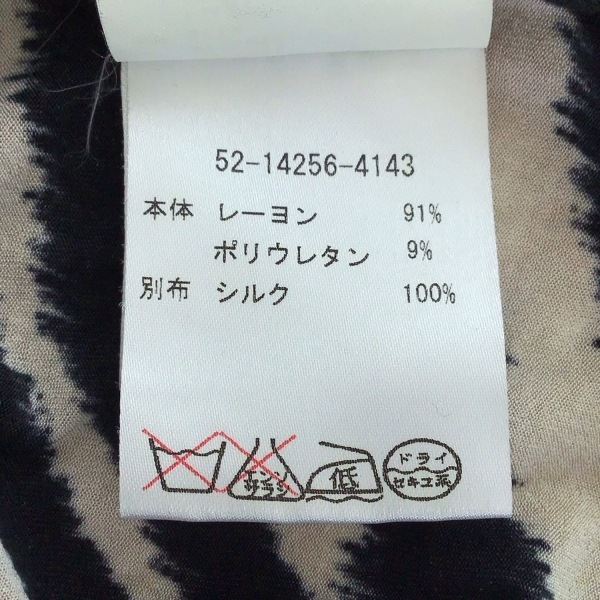 52-14256-4143
本体 レーヨン 91%
ポリウレタン 9%
別布 シルク 100%
エンソ
サラシ
低
ドライ
セキユ系